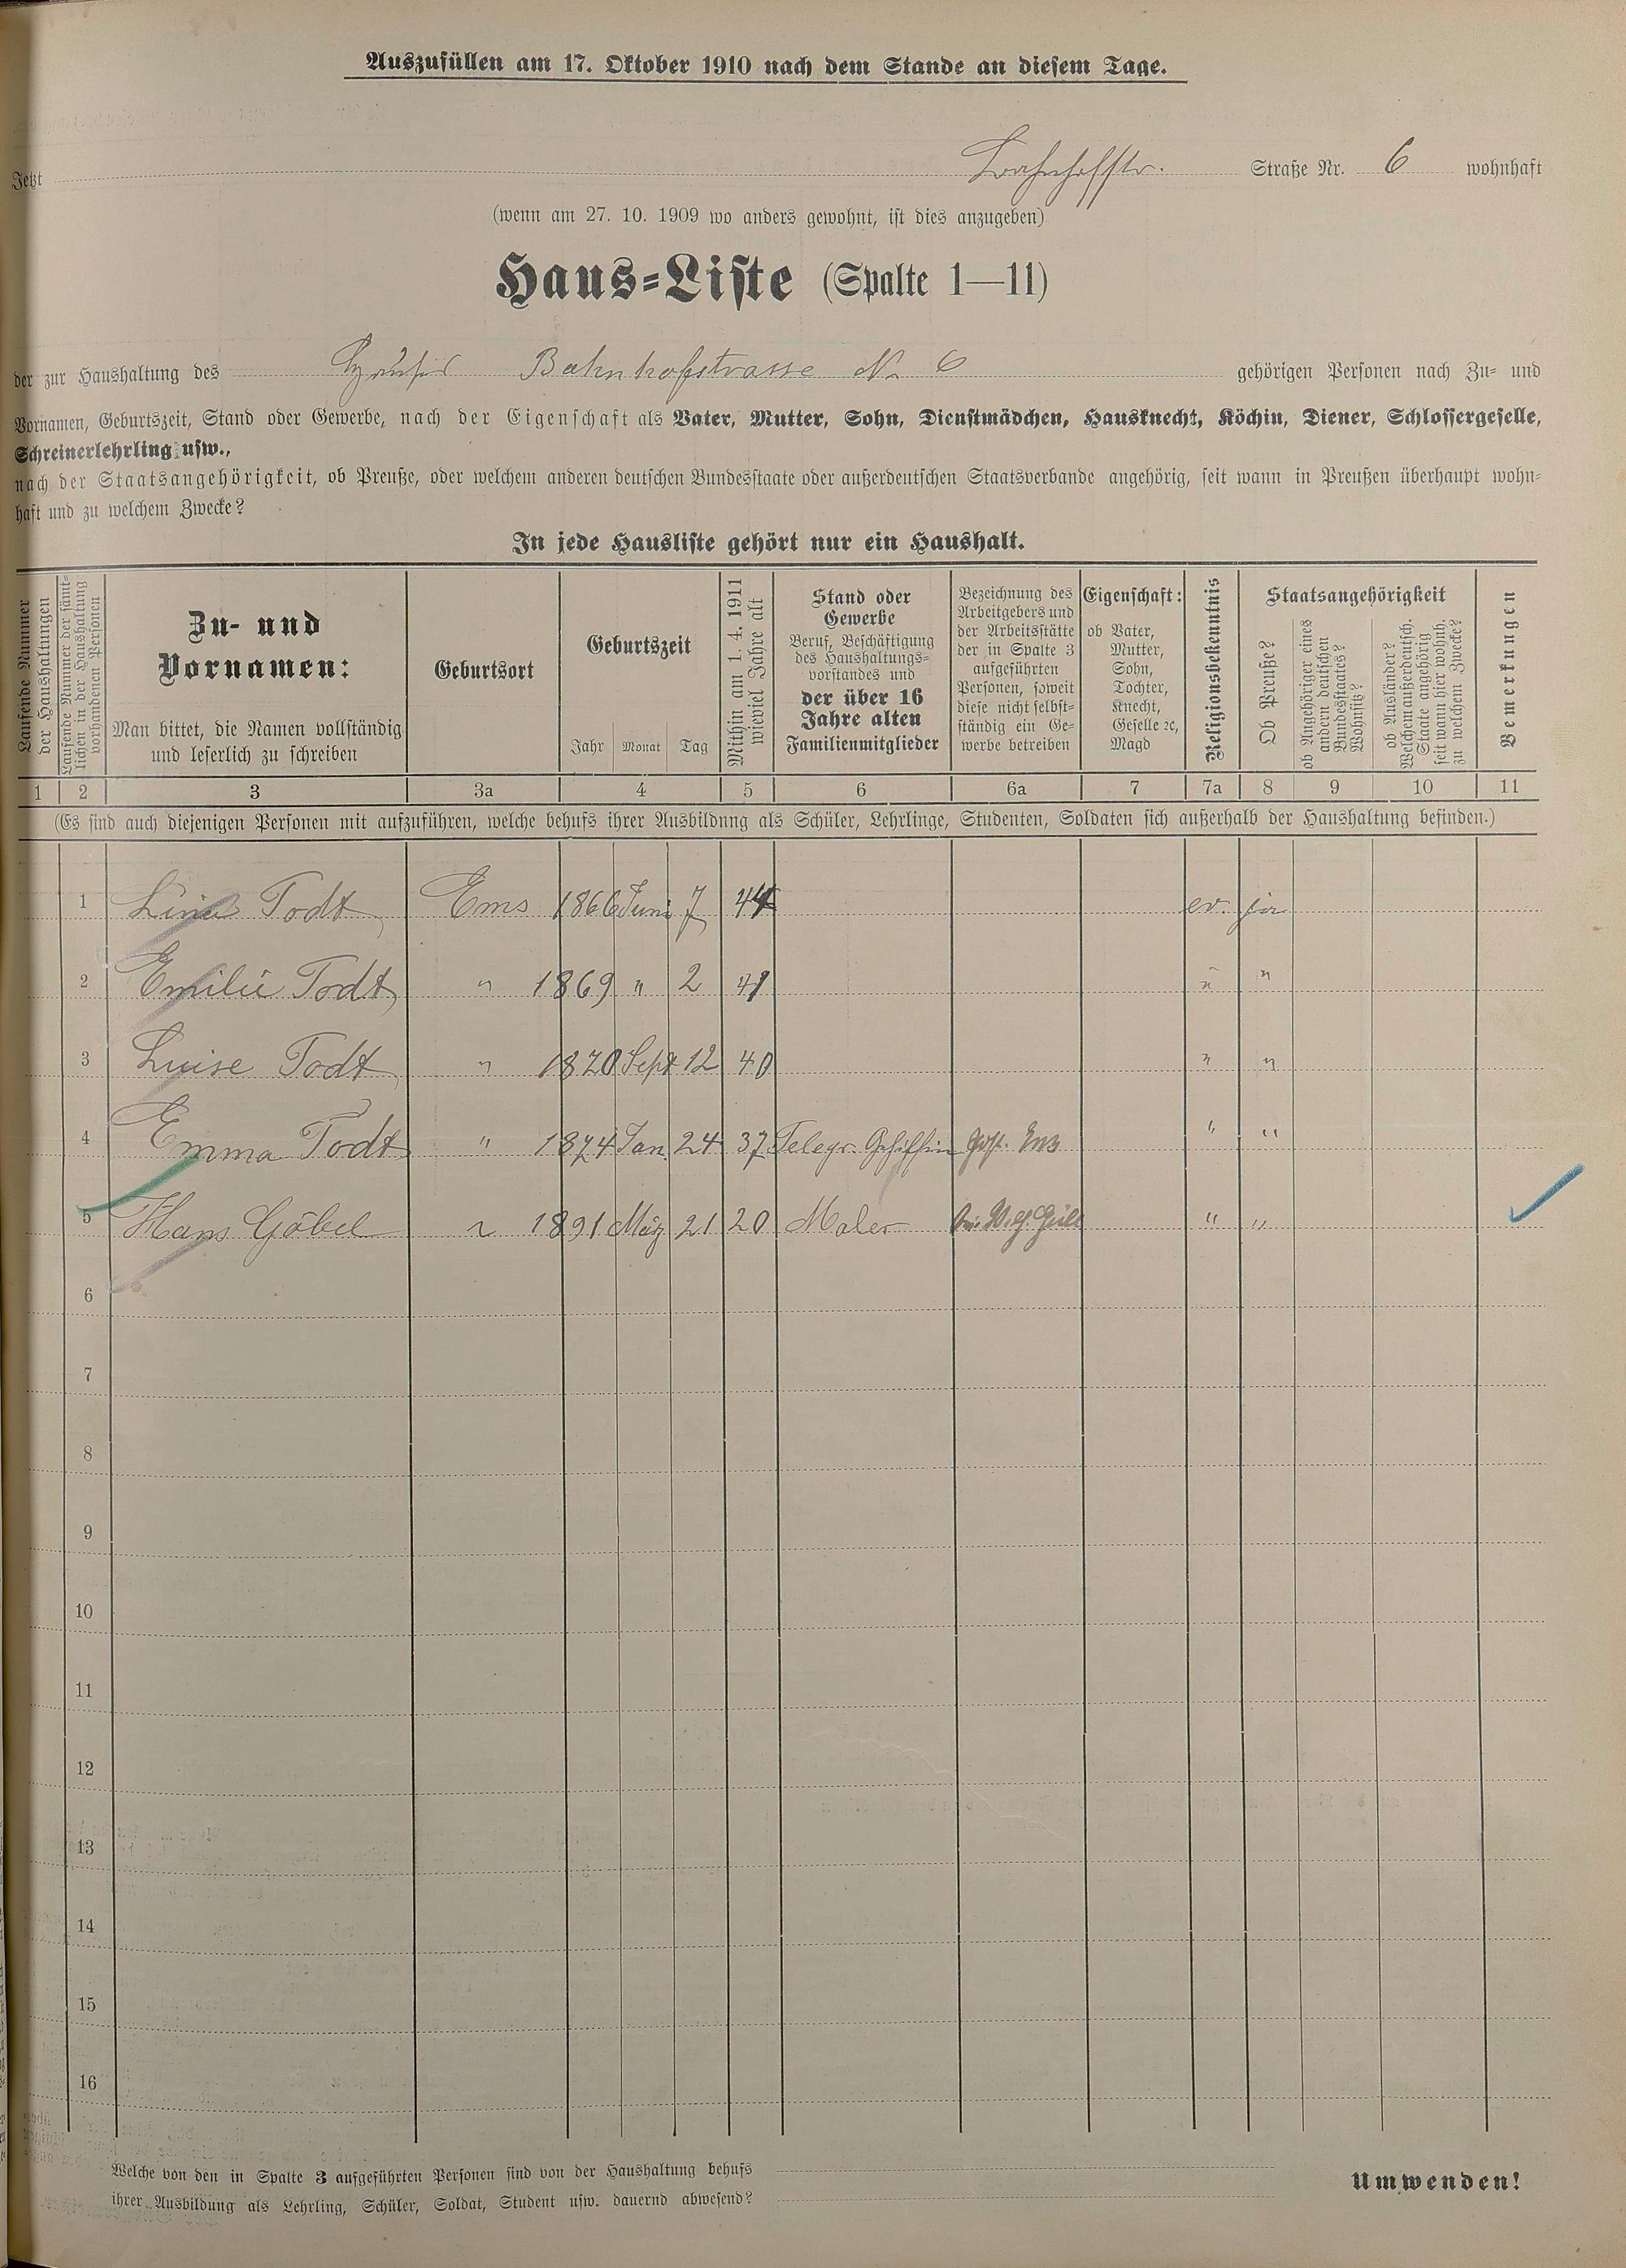 Auszufüllen am 17. Oktober 1910 nach dem Stande an diesem Tage.
Jetzt Bahnhofstr. Straße Nr. 6 wohnhaft
(wenn am 27. 10. 1909 wo anders gewohnt, ist dies anzugeben)
Haus-Liste (Spalte 1—11)
der zur Haushaltung des Bahnhofstrasse No 6 gehörigen Personen nach Zu- und
Vornamen, Geburtszeit, Stand oder Gewerbe, nach der Eigenschaft als Vater, Mutter, Sohn, Dienstmädchen, Hausknecht, Köchin, Diener, Schlossergeselle,
Schreinerlehrling usw.,
nach der Staatsangehörigkeit, ob Preuße, oder welchem anderen deutschen Bundesstaate oder außerdeutschen Staatsverbande angehörig, seit wann in Preußen überhaupt wohn-
haft und zu welchem Zwecke?
In jede Hausliste gehört nur ein Haushalt.
Laufende Nummer
der Haushaltungen
Laufende Nummer der sämt-
lichen in der Haushaltung
vorhandenen Personen
Zu- und
Vornamen:
Man bittet, die Namen vollständig
und leserlich zu schreiben
Geburtsort
Geburtszeit
Jahr Monat Tag
Mithin am 1. 4. 1911
wieviel Jahre alt
Stand oder
Gewerbe
Beruf, Beschäftigung
des Haushaltungs-
vorstandes und
der über 16
Jahre alten
Familienmitglieder
Bezeichnung des
Arbeitgebers und
der Arbeitsstätte
der in Spalte 3
aufgeführten
Personen, soweit
diese nicht selbst-
ständig ein Ge-
werbe betreiben
Eigenschaft:
ob Vater,
Mutter,
Sohn,
Tochter,
Knecht,
Geselle ꝛc,
Magd
Religionsbekenntnis
Staatsangehörigkeit
Ob Preuße?
ob Angehöriger eines
andern deutschen
Bundesstaates?
Wohnsitz?
ob Ausländer?
Welchem außerdeutsch.
Staate angehörig
seit wann hier wohnh.
zu welchem Zwecke?
Bemerkungen
1 2 3 3a 4 5 6 6a 7 7a 8 9 10 11
(Es sind auch diejenigen Personen mit aufzuführen, welche behufs ihrer Ausbildung als Schüler, Lehrlinge, Studenten, Soldaten sich außerhalb der Haushaltung befinden.)
1 Lina Todt Ems 1866 Juni 7 44 ev. ja
2 Emilie Todt " 1869 " 2 41 " "
3 Luise Todt " 1870 Sept 12 40 " "
4 Emma Todt " 1874 Jan. 24 37 Telegr. Gehilfin Post. Ems " "
5 Hans Göbel " 1891 März 21 20 Maler " "
6
7
8
9
10
11
12
13
14
15
16
Welche von den in Spalte 3 aufgeführten Personen sind von der Haushaltung behufs
ihrer Ausbildung als Lehrling, Schüler, Soldat, Student usw. dauernd abwesend?
Umwenden!